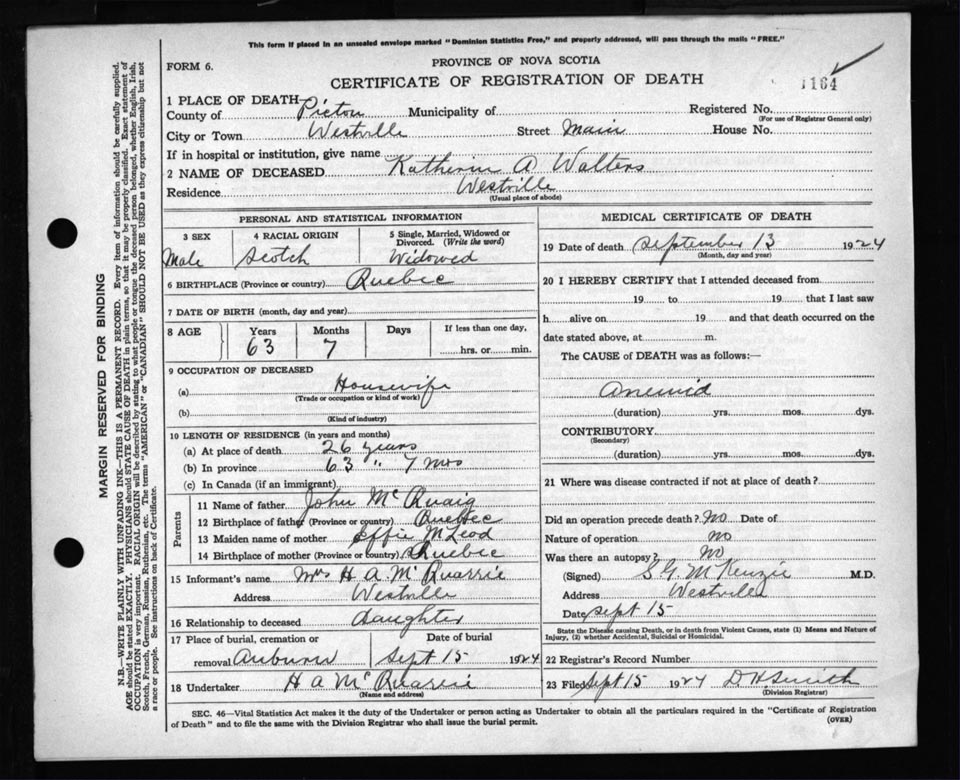 This form if placed in an unsealed envelope marked "Dominion Statistics Free," and properly addressed, will pass through the mails "FREE."
FORM 6.
PROVINCE OF NOVA SCOTIA
CERTIFICATE OF REGISTRATION OF DEATH
1164
1 PLACE OF DEATH—
County of Pictou Municipality of Registered No.
(For use of Registrar General only)
City or Town Westville Street Main House No.
If in hospital or institution, give name
2 NAME OF DECEASED Katherin A Walters
Residence Westville
(Usual place of abode)
PERSONAL AND STATISTICAL INFORMATION
3 SEX
Male
4 RACIAL ORIGIN
Scotch
5 Single, Married, Widowed or
Divorced. (Write the word)
Widowed
6 BIRTHPLACE (Province or country) Quebec
7 DATE OF BIRTH (month, day and year)
8 AGE Years Months Days If less than one day,
63 7 hrs. or min.
9 OCCUPATION OF DECEASED
(a) Housewife
(Trade or occupation or kind of work)
(b)
(Kind of industry)
10 LENGTH OF RESIDENCE (in years and months)
(a) At place of death 26 years
(b) In province 63 " 7 mos
(c) In Canada (if an immigrant)
Parents
11 Name of father John McQuaig
12 Birthplace of father (Province or country) Quebec
13 Maiden name of mother Effie McLeod
14 Birthplace of mother (Province or country) Quebec
15 Informant's name Mrs H A McQuarrie
Address Westville
16 Relationship to deceased Daughter
17 Place of burial, cremation or Date of burial
removal Auburn Sept 15 1924
18 Undertaker H A McQuarrie
(Name and address)
MEDICAL CERTIFICATE OF DEATH
19 Date of death September 13 1924
(Month, day and year)
20 I HEREBY CERTIFY that I attended deceased from
19 to 19 that I last saw
h alive on 19 and that death occurred on the
date stated above, at m.
The CAUSE of DEATH was as follows:—
Anemid
(duration) yrs. mos. dys.
CONTRIBUTORY
(Secondary)
(duration) yrs. mos. dys.
21 Where was disease contracted if not at place of death?
Did an operation precede death? No Date of
Nature of operation no
Was there an autopsy? No
(Signed) S.G. McKenzie M.D.
Address Westville
Date Sept 15
State the Disease causing Death, or in death from Violent Causes, state (1) Means and Nature of
Injury, (2) whether Accidental, Suicidal or Homicidal.
22 Registrar's Record Number
23 Filed Sept 15 1924 D H Smith
(Division Registrar)
SEC. 46—Vital Statistics Act makes it the duty of the Undertaker or person acting as Undertaker to obtain all the particulars required in the "Certificate of Registration
of Death" and to file the same with the Division Registrar who shall issue the burial permit.
(OVER)
MARGIN RESERVED FOR BINDING
N.B.—WRITE PLAINLY WITH UNFADING INK—THIS IS A PERMANENT RECORD. Every item of information should be carefully supplied.
AGE should be stated EXACTLY. PHYSICIANS should STATE CAUSE OF DEATH in plain terms, so that it may be properly classified. Exact statement of
OCCUPATION is very important. RACIAL ORIGIN will be described by stating to what people or tongue the deceased person belonged, whether English, Irish,
Scotch, French, German, Russian, Ruthenian, etc. The terms "AMERICAN" or "CANADIAN" SHOULD NOT BE USED as they express citizenship but not
a race or people. See instructions on back of Certificate.